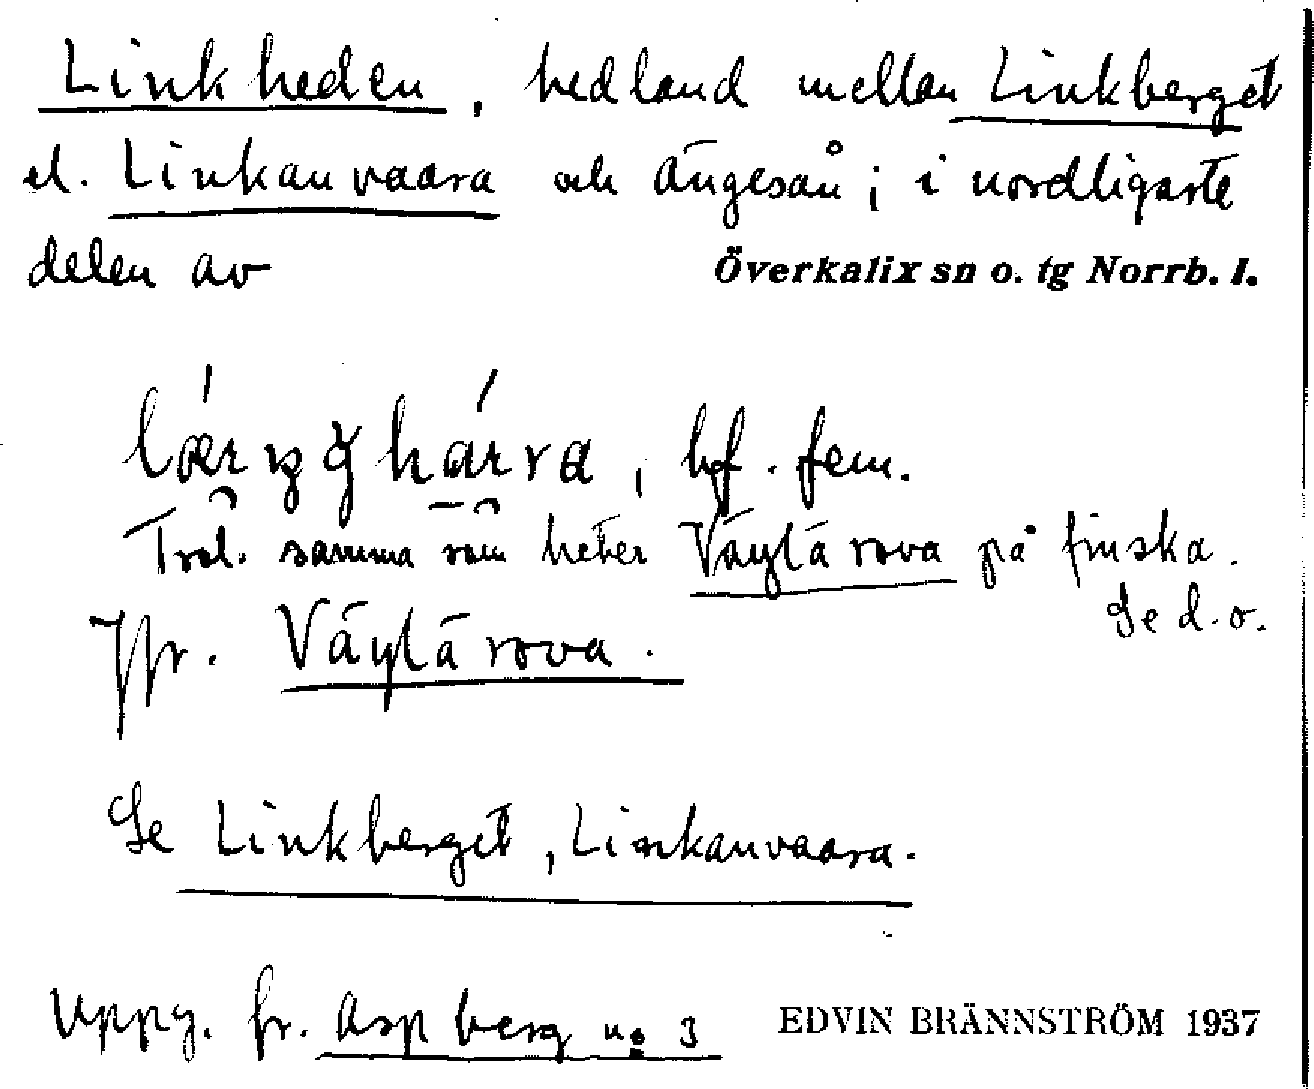 Linkheden, hedland mellan Linkberget
el. Linkanvaara och Ängesån; i nordligaste
delen av Överkalix sn o. tg Norrb. l.
, bf. fem.
Trol. samma som heter Väylärova på finska.
Se d.o.
Jfr. Väylärova.
Se Linkberget, Linkanvaara.
Uppg. fr. Aspberg no 3 EDVIN BRÄNNSTRÖM 1937